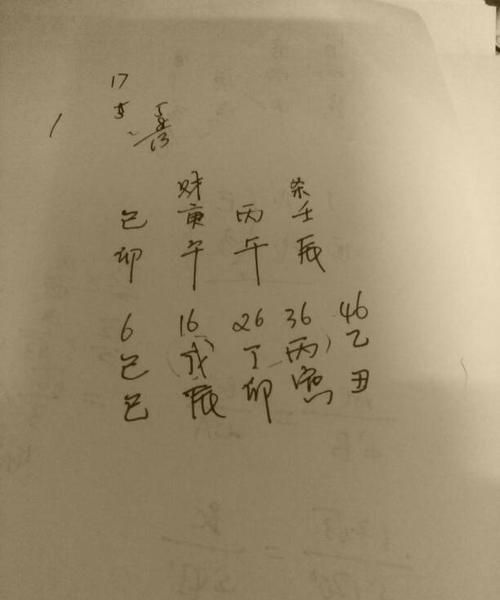 17
财 杀
己 庚 丙 壬
卯 午 午 辰
6 16 26 36 46
己 戊 丁 丙 乙
巳 辰 卯 寅 丑